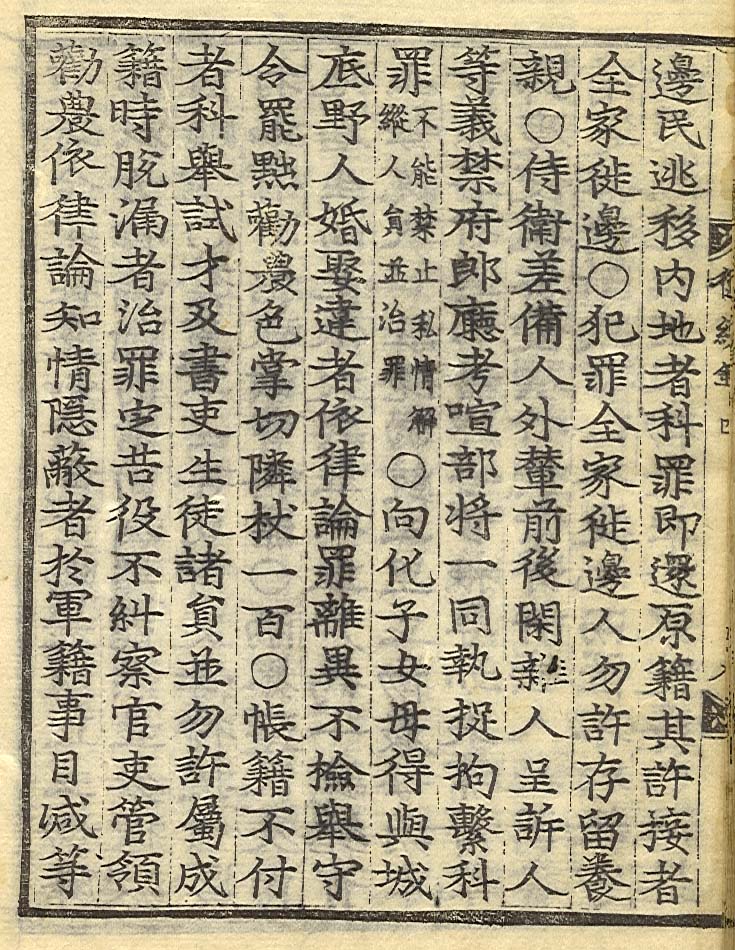 邊民逃移內地者科罪卽還原籍其許接者
全家徙邊○犯罪全家徙邊人勿許存留養
親○侍衛差備人外輦前後閑雜人呈訴人
等義禁府郞廳考喧部將一同執捉拘繫科
罪不能禁止私情解縱人員並治罪○向化子女毋得與城
底野人婚娶違者依律論罪離異不檢擧守
令罷黜勸農色掌切隣杖一百○帳籍不付
者科擧試才及書吏生徒諸員並勿許屬成
籍時脫漏者治罪定苦役不糾察官吏管領
勸農依律論知情隱蔽者於軍籍事目減等